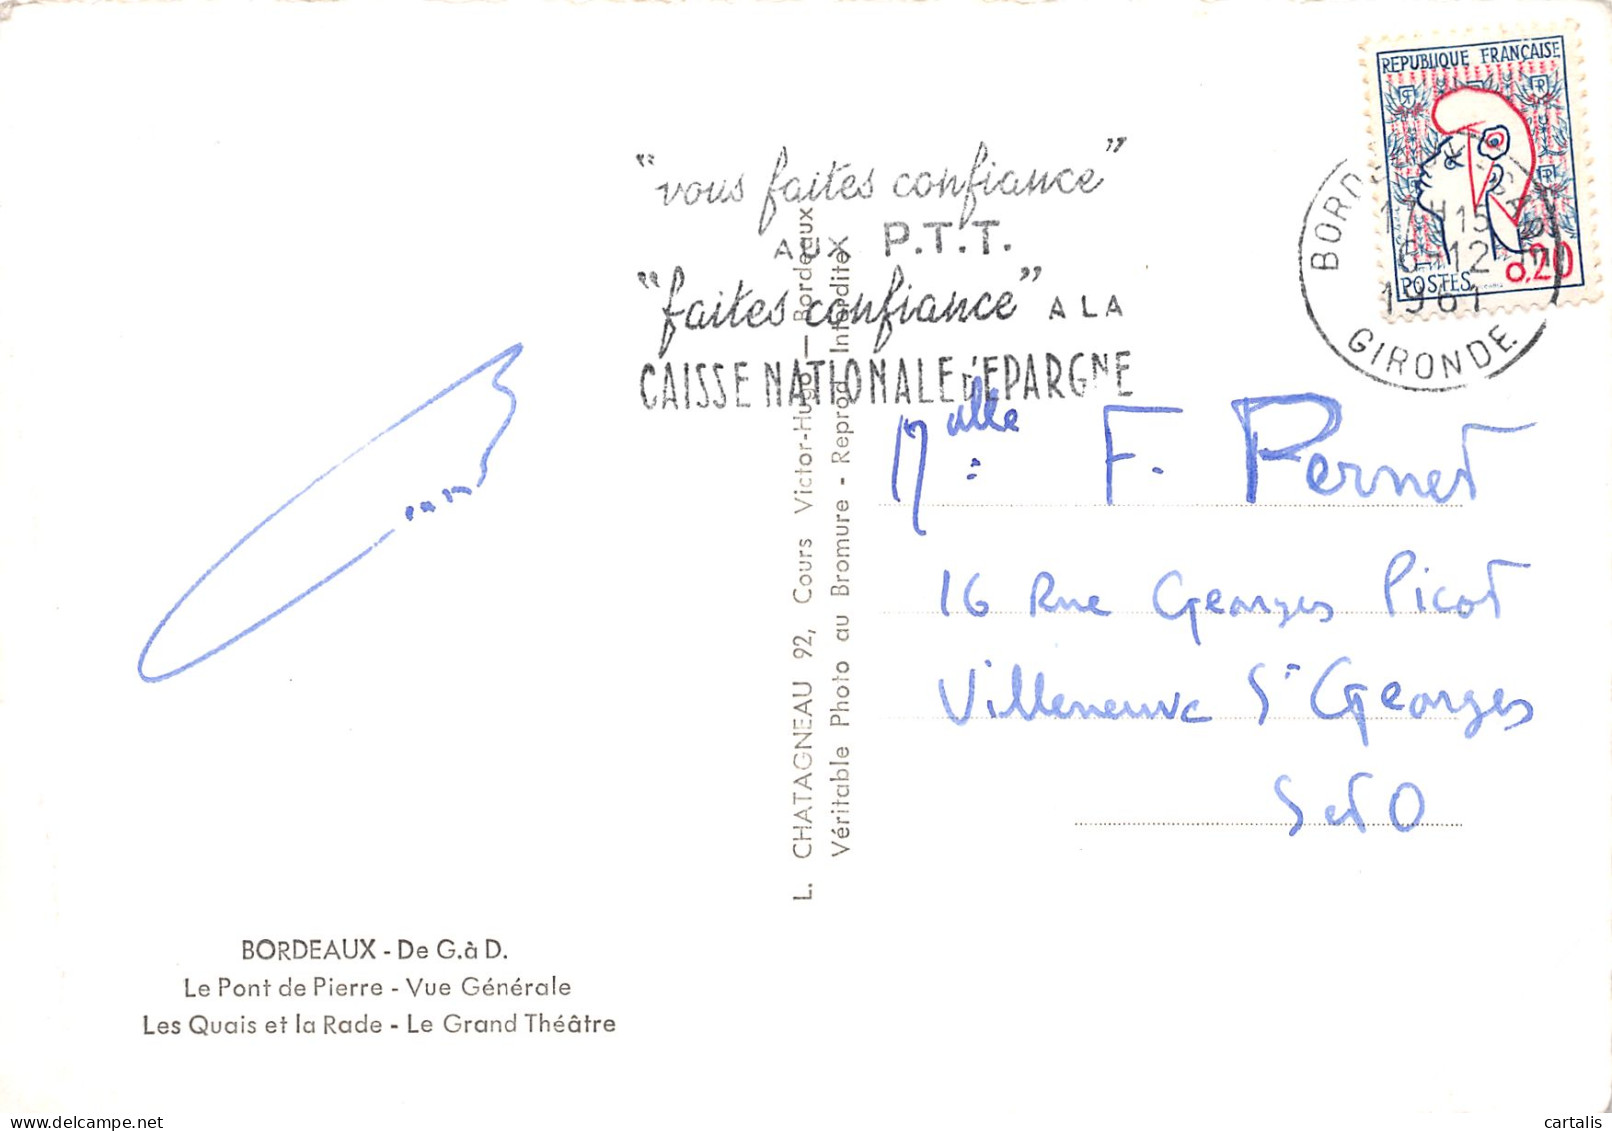 REPUBLIQUE FRANÇAISE
0,20
POSTES
17H15
6-12
1961
GIRONDE
"vous faites confiance"
AUX P.T.T.
"faites confiance" A LA
CAISSE NATIONALE d'EPARGNE
Melle F. Pernet
16 Rue Georges Picot
Villeneuve St Georges
S et O
L. CHATAGNEAU 92, Cours Victor-Hugo — Bordeaux
Véritable Photo au Bromure - Reprod. Interdite
BORDEAUX - De G. à D.
Le Pont de Pierre - Vue Générale
Les Quais et la Rade - Le Grand Théâtre
delcampe.net
cartalis